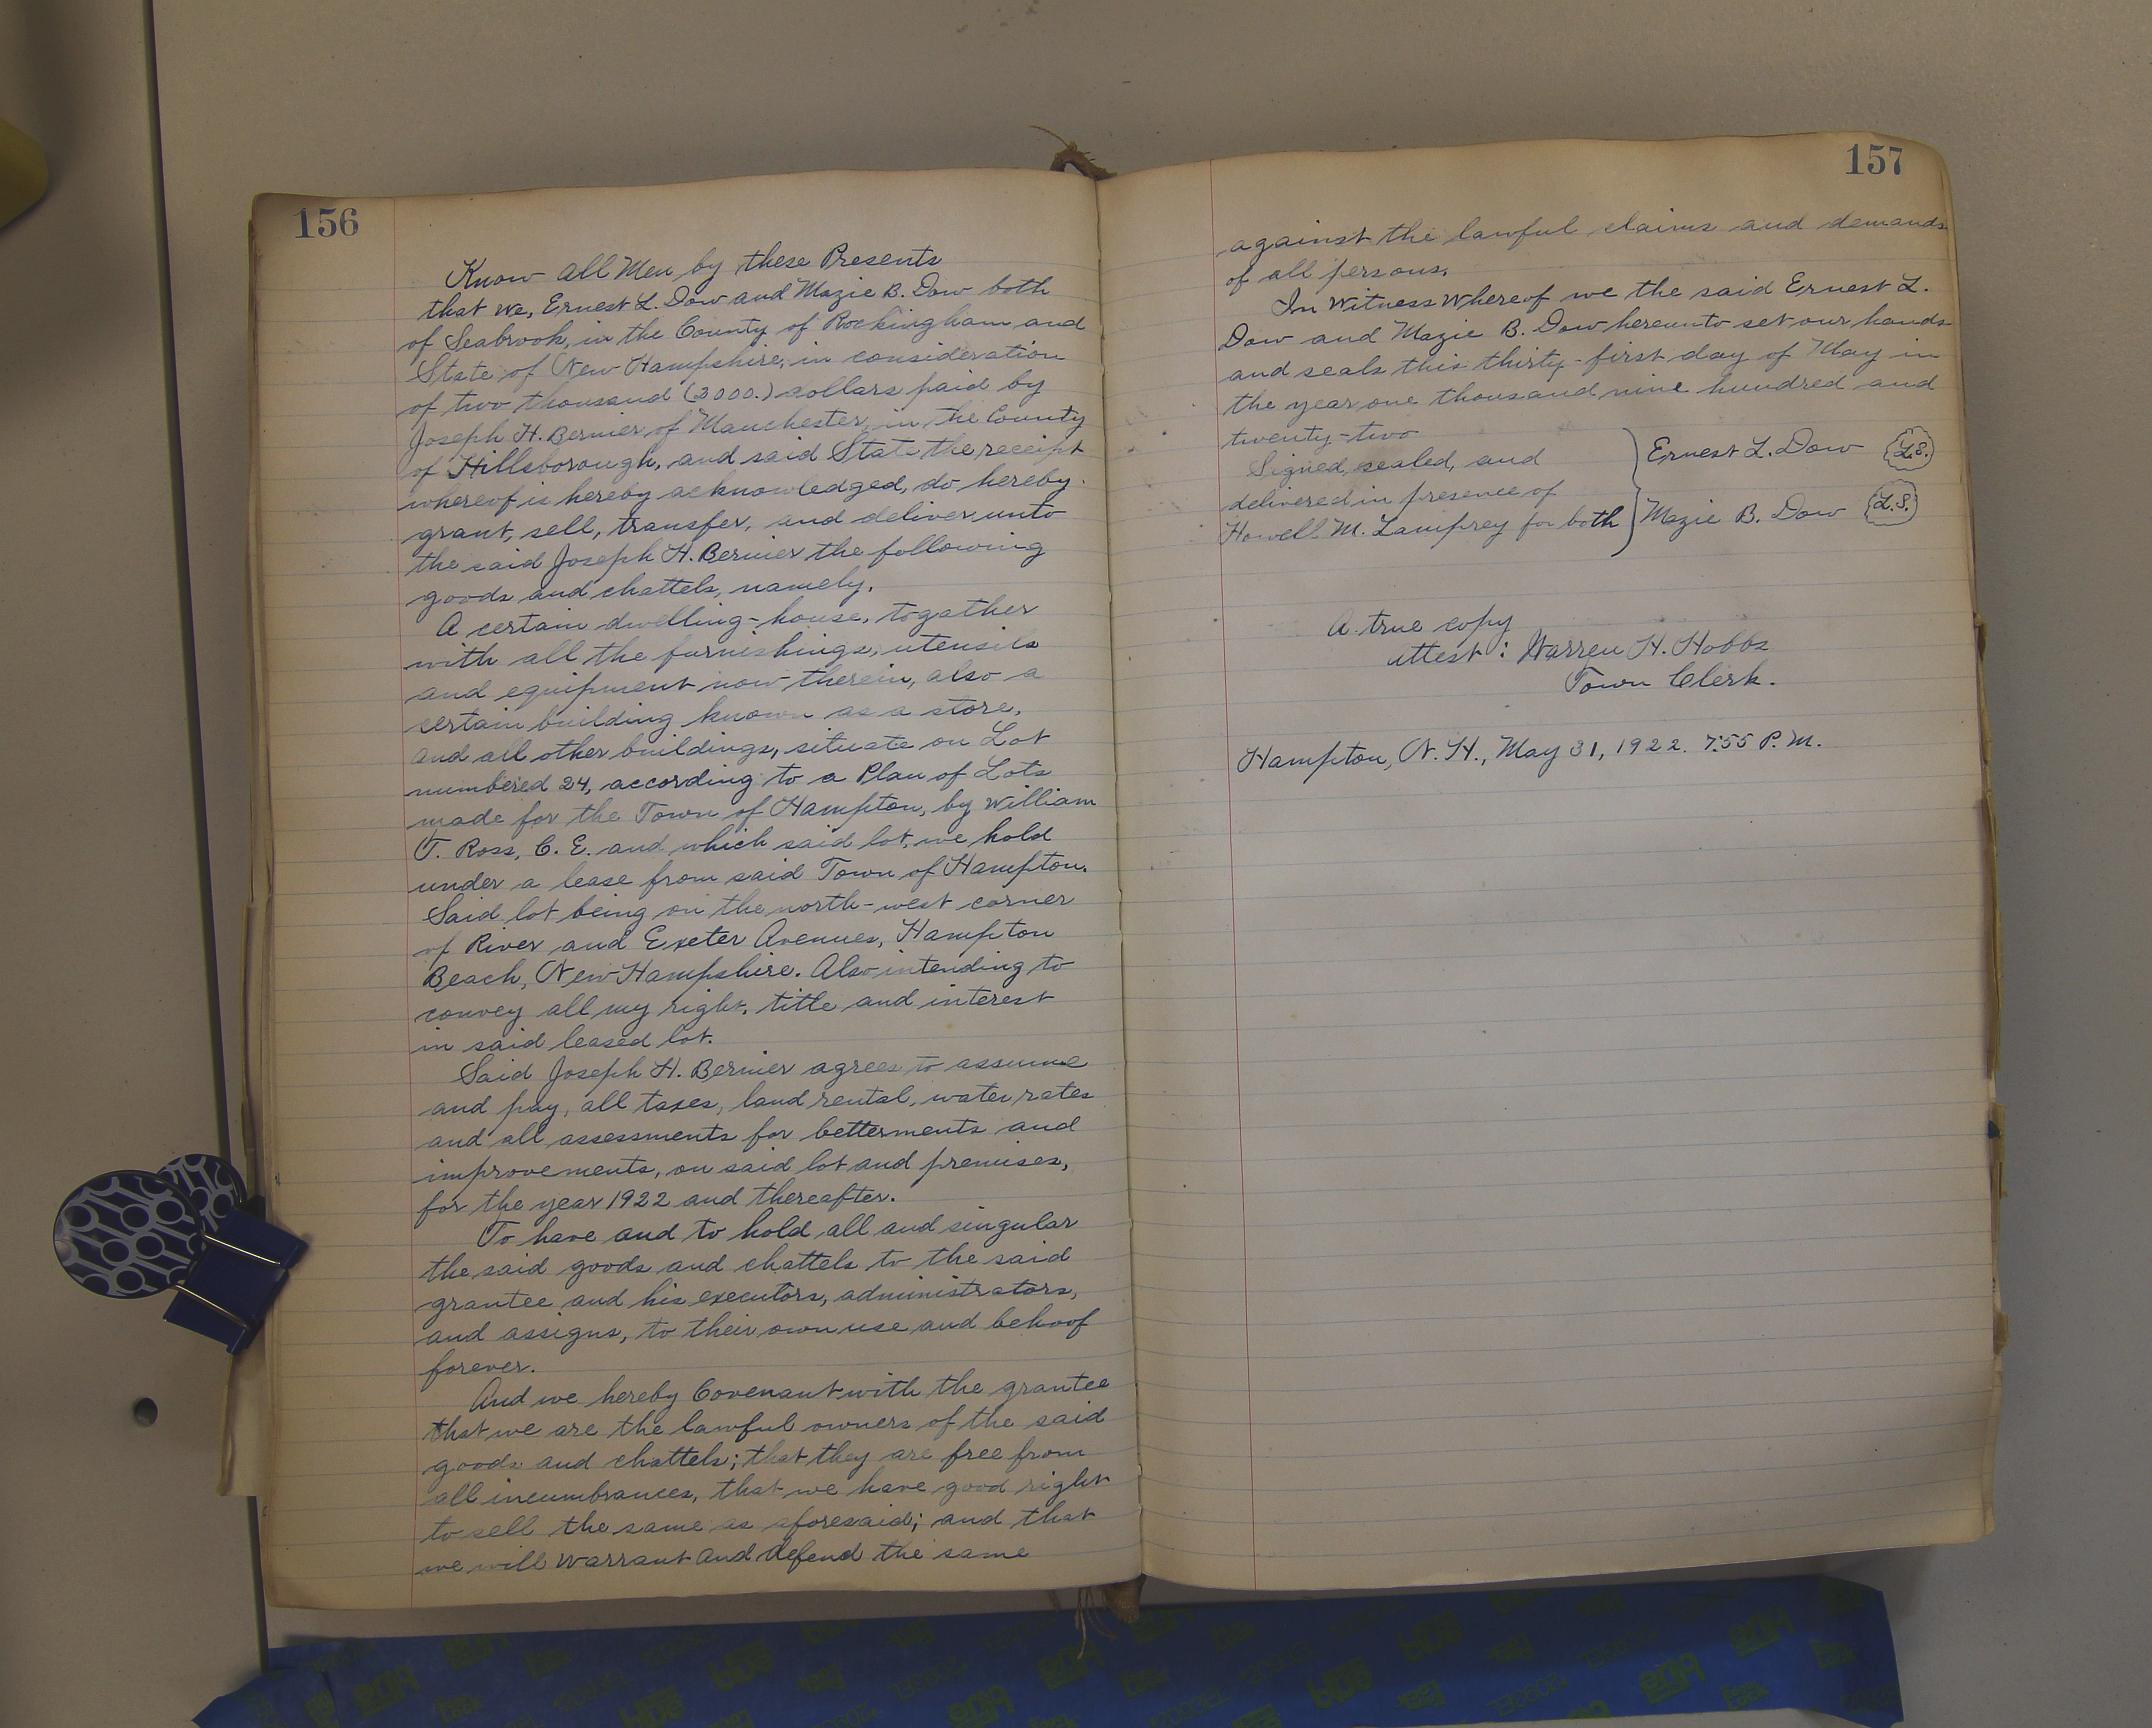 156
Know All Men by these Presents
that we, Ernest L. Dow and Mazie B. Dow both
of Seabrook, in the County of Rockingham and
State of New Hampshire, in consideration
of two thousand (2000.) dollars paid by
Joseph H. Bernier of Manchester, in the County
of Hillsborough, and said State the receipt
whereof is hereby acknowledged, do hereby
grant, sell, transfer, and deliver unto
the said Joseph H. Bernier the following
goods and chattels, namely,
A certain dwelling-house, togather
with all the furnishings, utensils
and equipment now therein, also a
certain building known as a store,
and all other buildings, situate on Lot
numbered 24, according to a Plan of Lots
made for the Town of Hampton, by William
T. Ross, C. E. and which said lot, we hold
under a lease from said Town of Hampton.
Said lot being on the north-west corner
of River and Exeter Avenues, Hampton
Beach, New Hampshire. Also intending to
convey all my right, title and interest
in said leased lot.
Said Joseph H. Bernier agrees to assume
and pay, all taxes, land rental, water rates
and all assessments for betterments and
improvements, on said lot and premises,
for the year 1922 and thereafter.
To have and to hold all and singular
the said goods and chattels to the said
grantee and his executors, administrators,
and assigns, to their own use and behoof
forever.
And we hereby Covenant with the grantee
that we are the lawful owners of the said
goods and chattels; that they are free from
all incumbrances, that we have good right
to sell the same as aforesaid; and that
we will Warrant and defend the same
157
against the lawful claims and demands
of all persons.
In Witness Whereof we the said Ernest L.
Dow and Mazie B. Dow hereunto set our hands
and seals this thirty-first day of May in
the year one thousand nine hundred and
twenty-two
Signed, sealed, and
delivered in presence of
Howell M. Lamprey for both
Ernest L. Dow L.S.
Mazie B. Dow L.S.
A true copy
attest: Warren H. Hobbs
Town Clerk.
Hampton, N. H., May 31, 1922. 7:55 P. M.